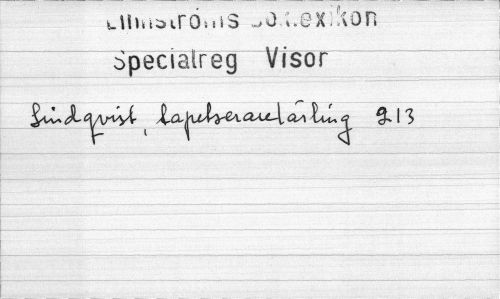 Linnströms Boklexikon
Specialreg Visor
Lindqvist, tapetserarelärling 213